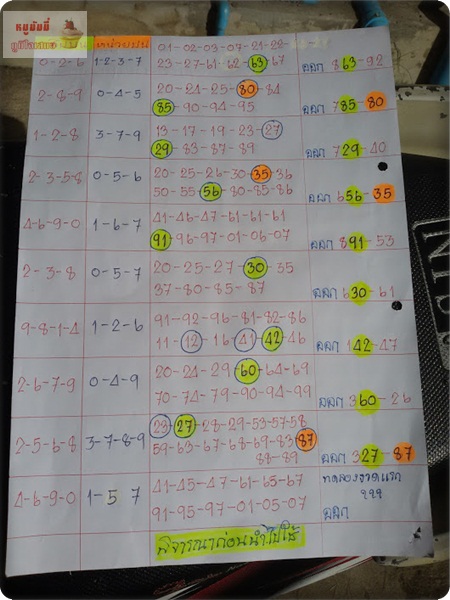 หมูยัมมี่
01-02-03-07-21-22-
0-2-6 1-2-3-7 23-27-61-62-63-67 ออก 863-92
2-8-9 0-4-5 20-24-25-80-84
85-90-94-95 ออก 785-80
1-2-8 3-7-9 13-17-19-23-27
29-83-87-89 ออก 729-40
2-3-5-8 0-5-6 20-25-26-30-35-36
50-55-56-80-85-86 ออก 656-35
4-6-9-0 1-6-7 41-46-47-61-61-61
91-96-97-01-06-07 ออก 891-53
2-3-8 0-5-7 20-25-27-30-35
37-80-85-87 ออก 630-61
9-8-1-4 1-2-6 91-92-96-81-82-86
11-12-16-41-42-46 ออก 142-47
2-6-7-9 0-4-9 20-24-29-60-64-69
70-74-79-90-94-99 ออก 360-26
2-5-6-8 3-7-8-9 23-27-28-29-53-57-58
59-63-67-68-69-83-87
88-89 ออก 327-87
4-6-9-0 1-5 7 41-45-47-61-65-67
91-95-97-01-05-07 ออก
พิจารณาก่อนนำไปใช้